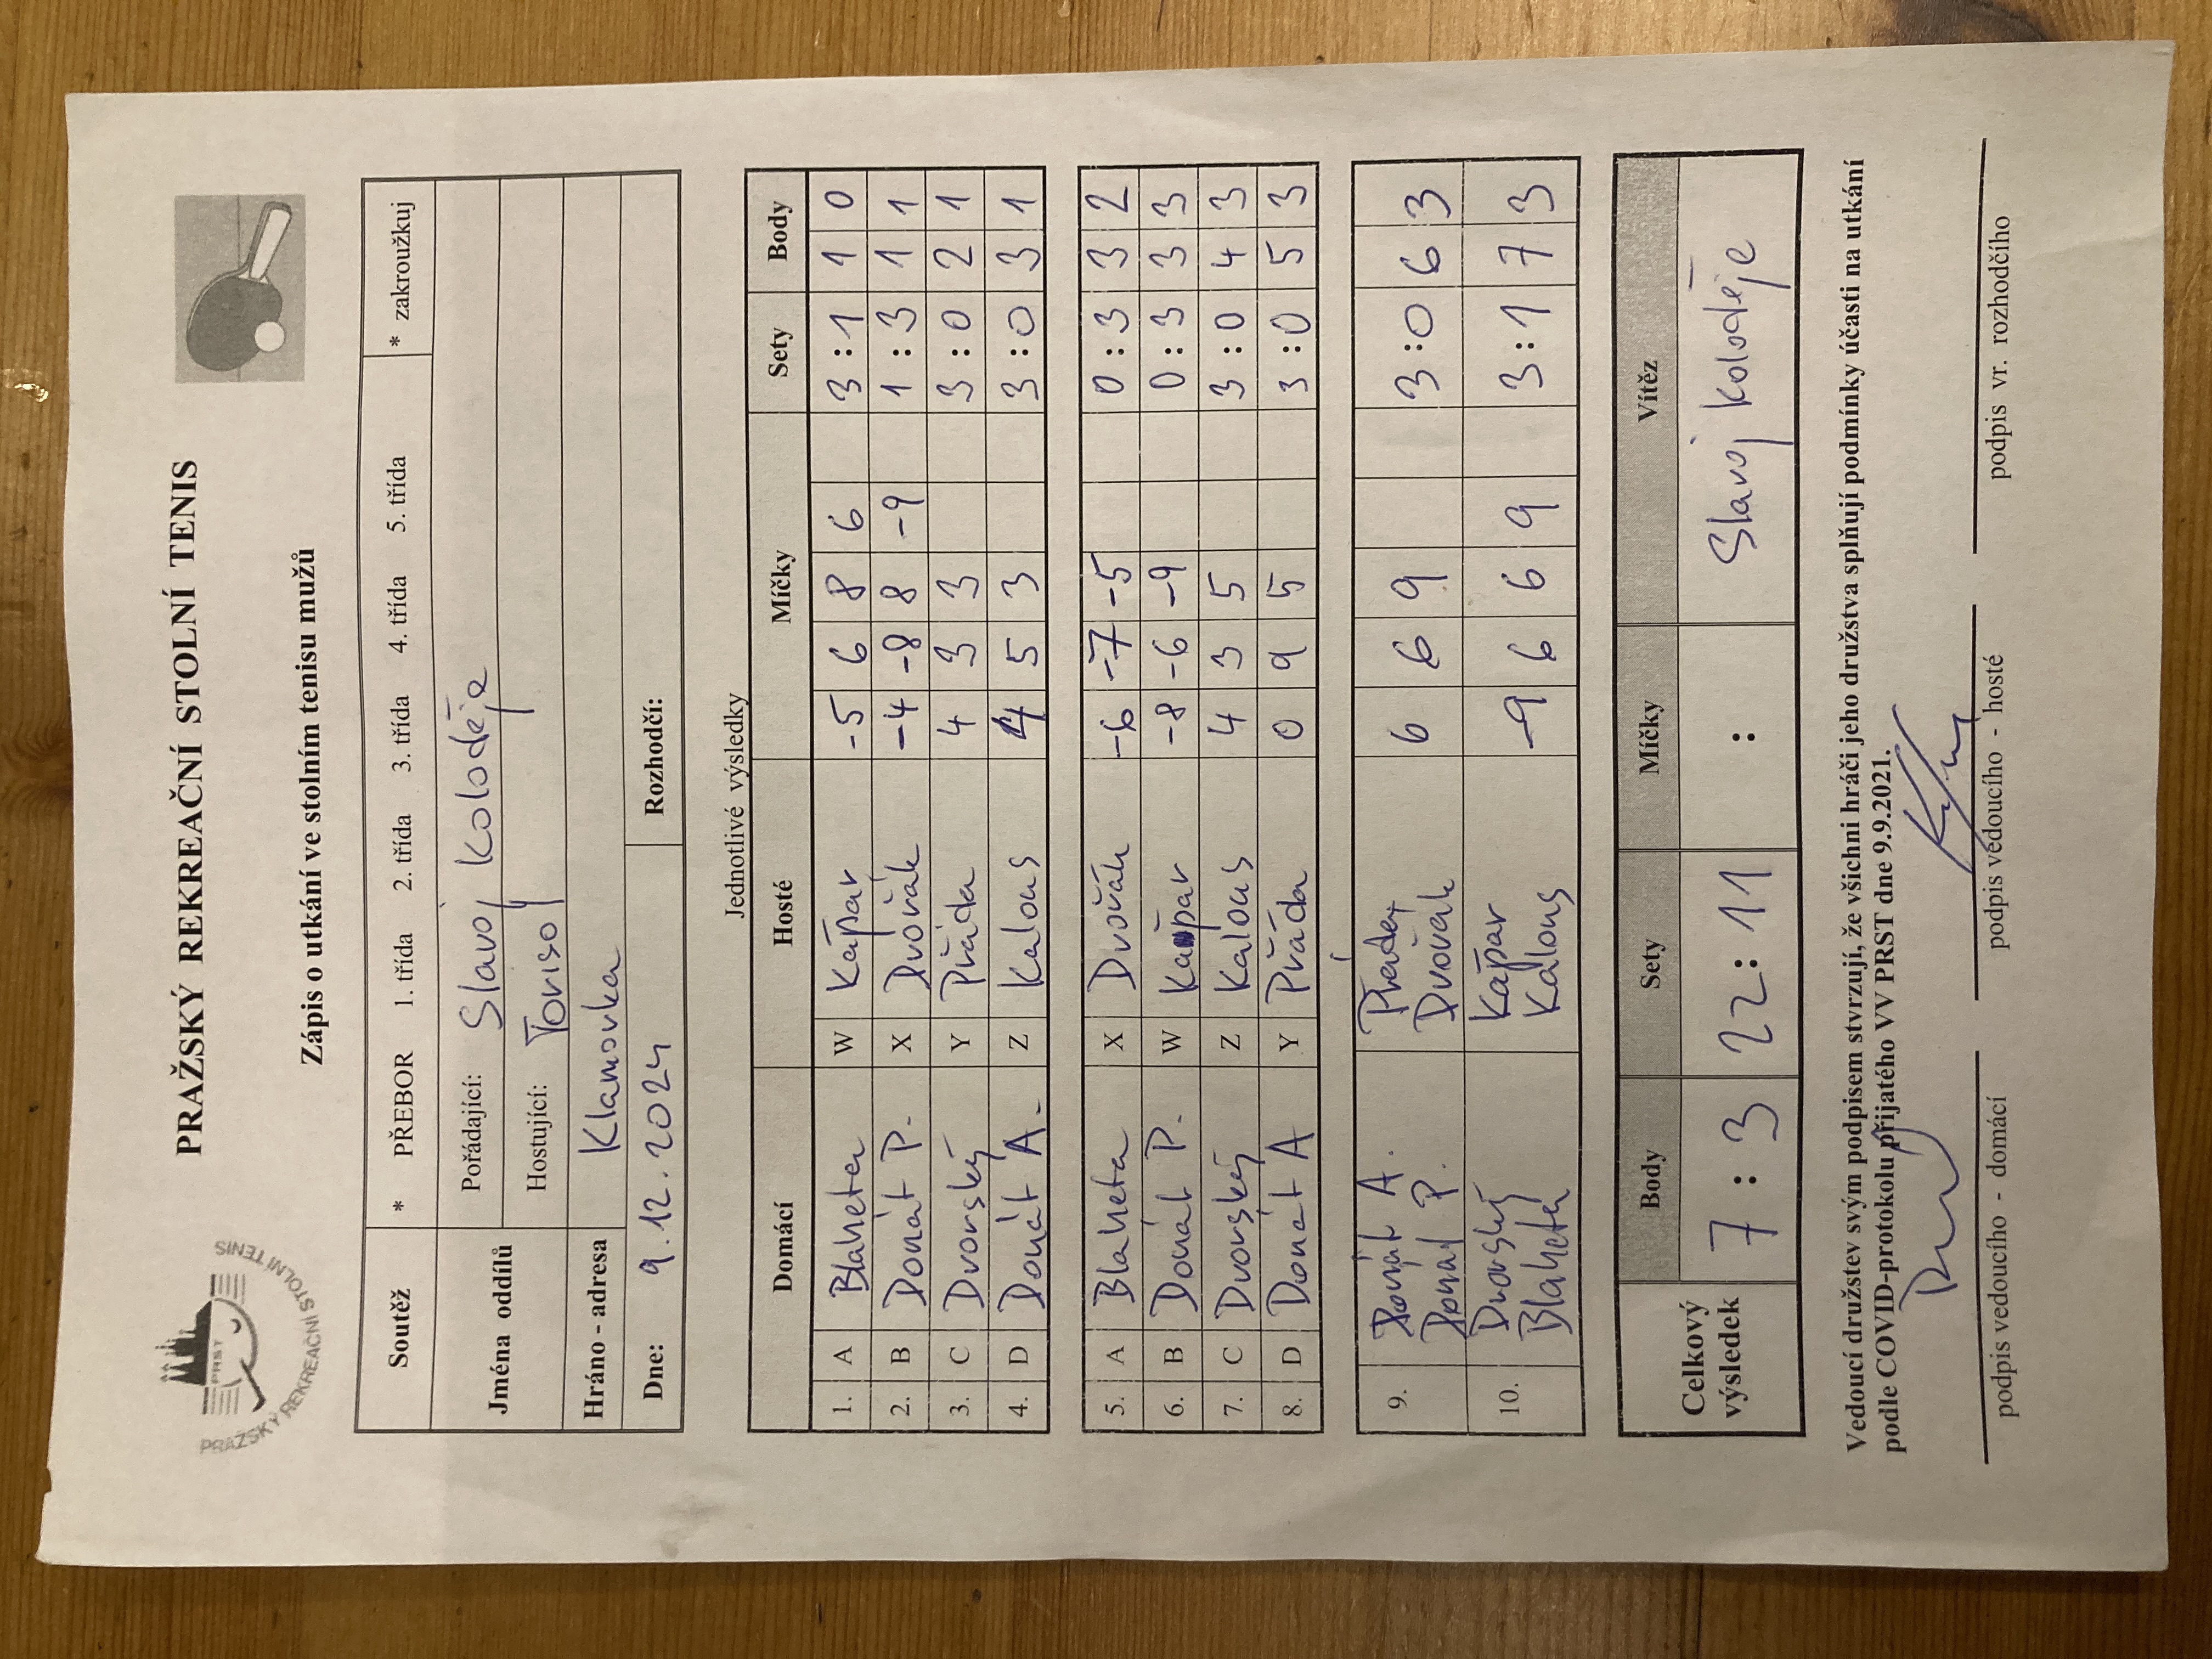 PRAŽSKÝ REKREAČNÍ STOLNÍ TENIS
PRST
PRAŽSKÝ REKREAČNÍ STOLNÍ TENIS
Zápis o utkání ve stolním tenisu mužů
Soutěž * PŘEBOR 1. třída 2. třída 3. třída 4. třída 5. třída * zakroužkuj
Jména oddílů Pořádající: Slavoj Koloděje
Hostující: Toriso
Hráno - adresa Klamovka
Dne: 9.12.2024 Rozhodčí:
Jednotlivé výsledky
Domácí Hosté Míčky Sety Body
1. A Blaheta W Kašpar -5 6 8 6 3 : 1 1 0
2. B Donát P. X Dvořák -4 -8 8 -9 1 : 3 1 1
3. C Dvorský Y Přáda 4 3 3 3 : 0 2 1
4. D Donát A. Z Kalous 4 5 3 3 : 0 3 1
5. A Blaheta X Dvořák -6 -7 -5 0 : 3 3 2
6. B Donát P. W Kašpar -8 -6 -9 0 : 3 3 3
7. C Dvorský Z Kalous 4 3 5 3 : 0 4 3
8. D Donát A Y Přáda 0 9 5 3 : 0 5 3
9. Donát A. 6 6 9 3 : 0 6 3
Donát P. Dvořák
10. Dvorský Kašpar -9 6 6 9 3 : 1 7 3
Blaheta Kalous
Celkový výsledek Body Sety Míčky Vítěz
7 : 3 22 : 11 : Slavoj Koloděje
Vedoucí družstev svým podpisem stvrzují, že všichni hráči jeho družstva splňují podmínky účasti na utkání
podle COVID-protokolu přijatého VV PRST dne 9.9.2021.
podpis vedoucího - domácí podpis vedoucího - hosté podpis vr. rozhodčího